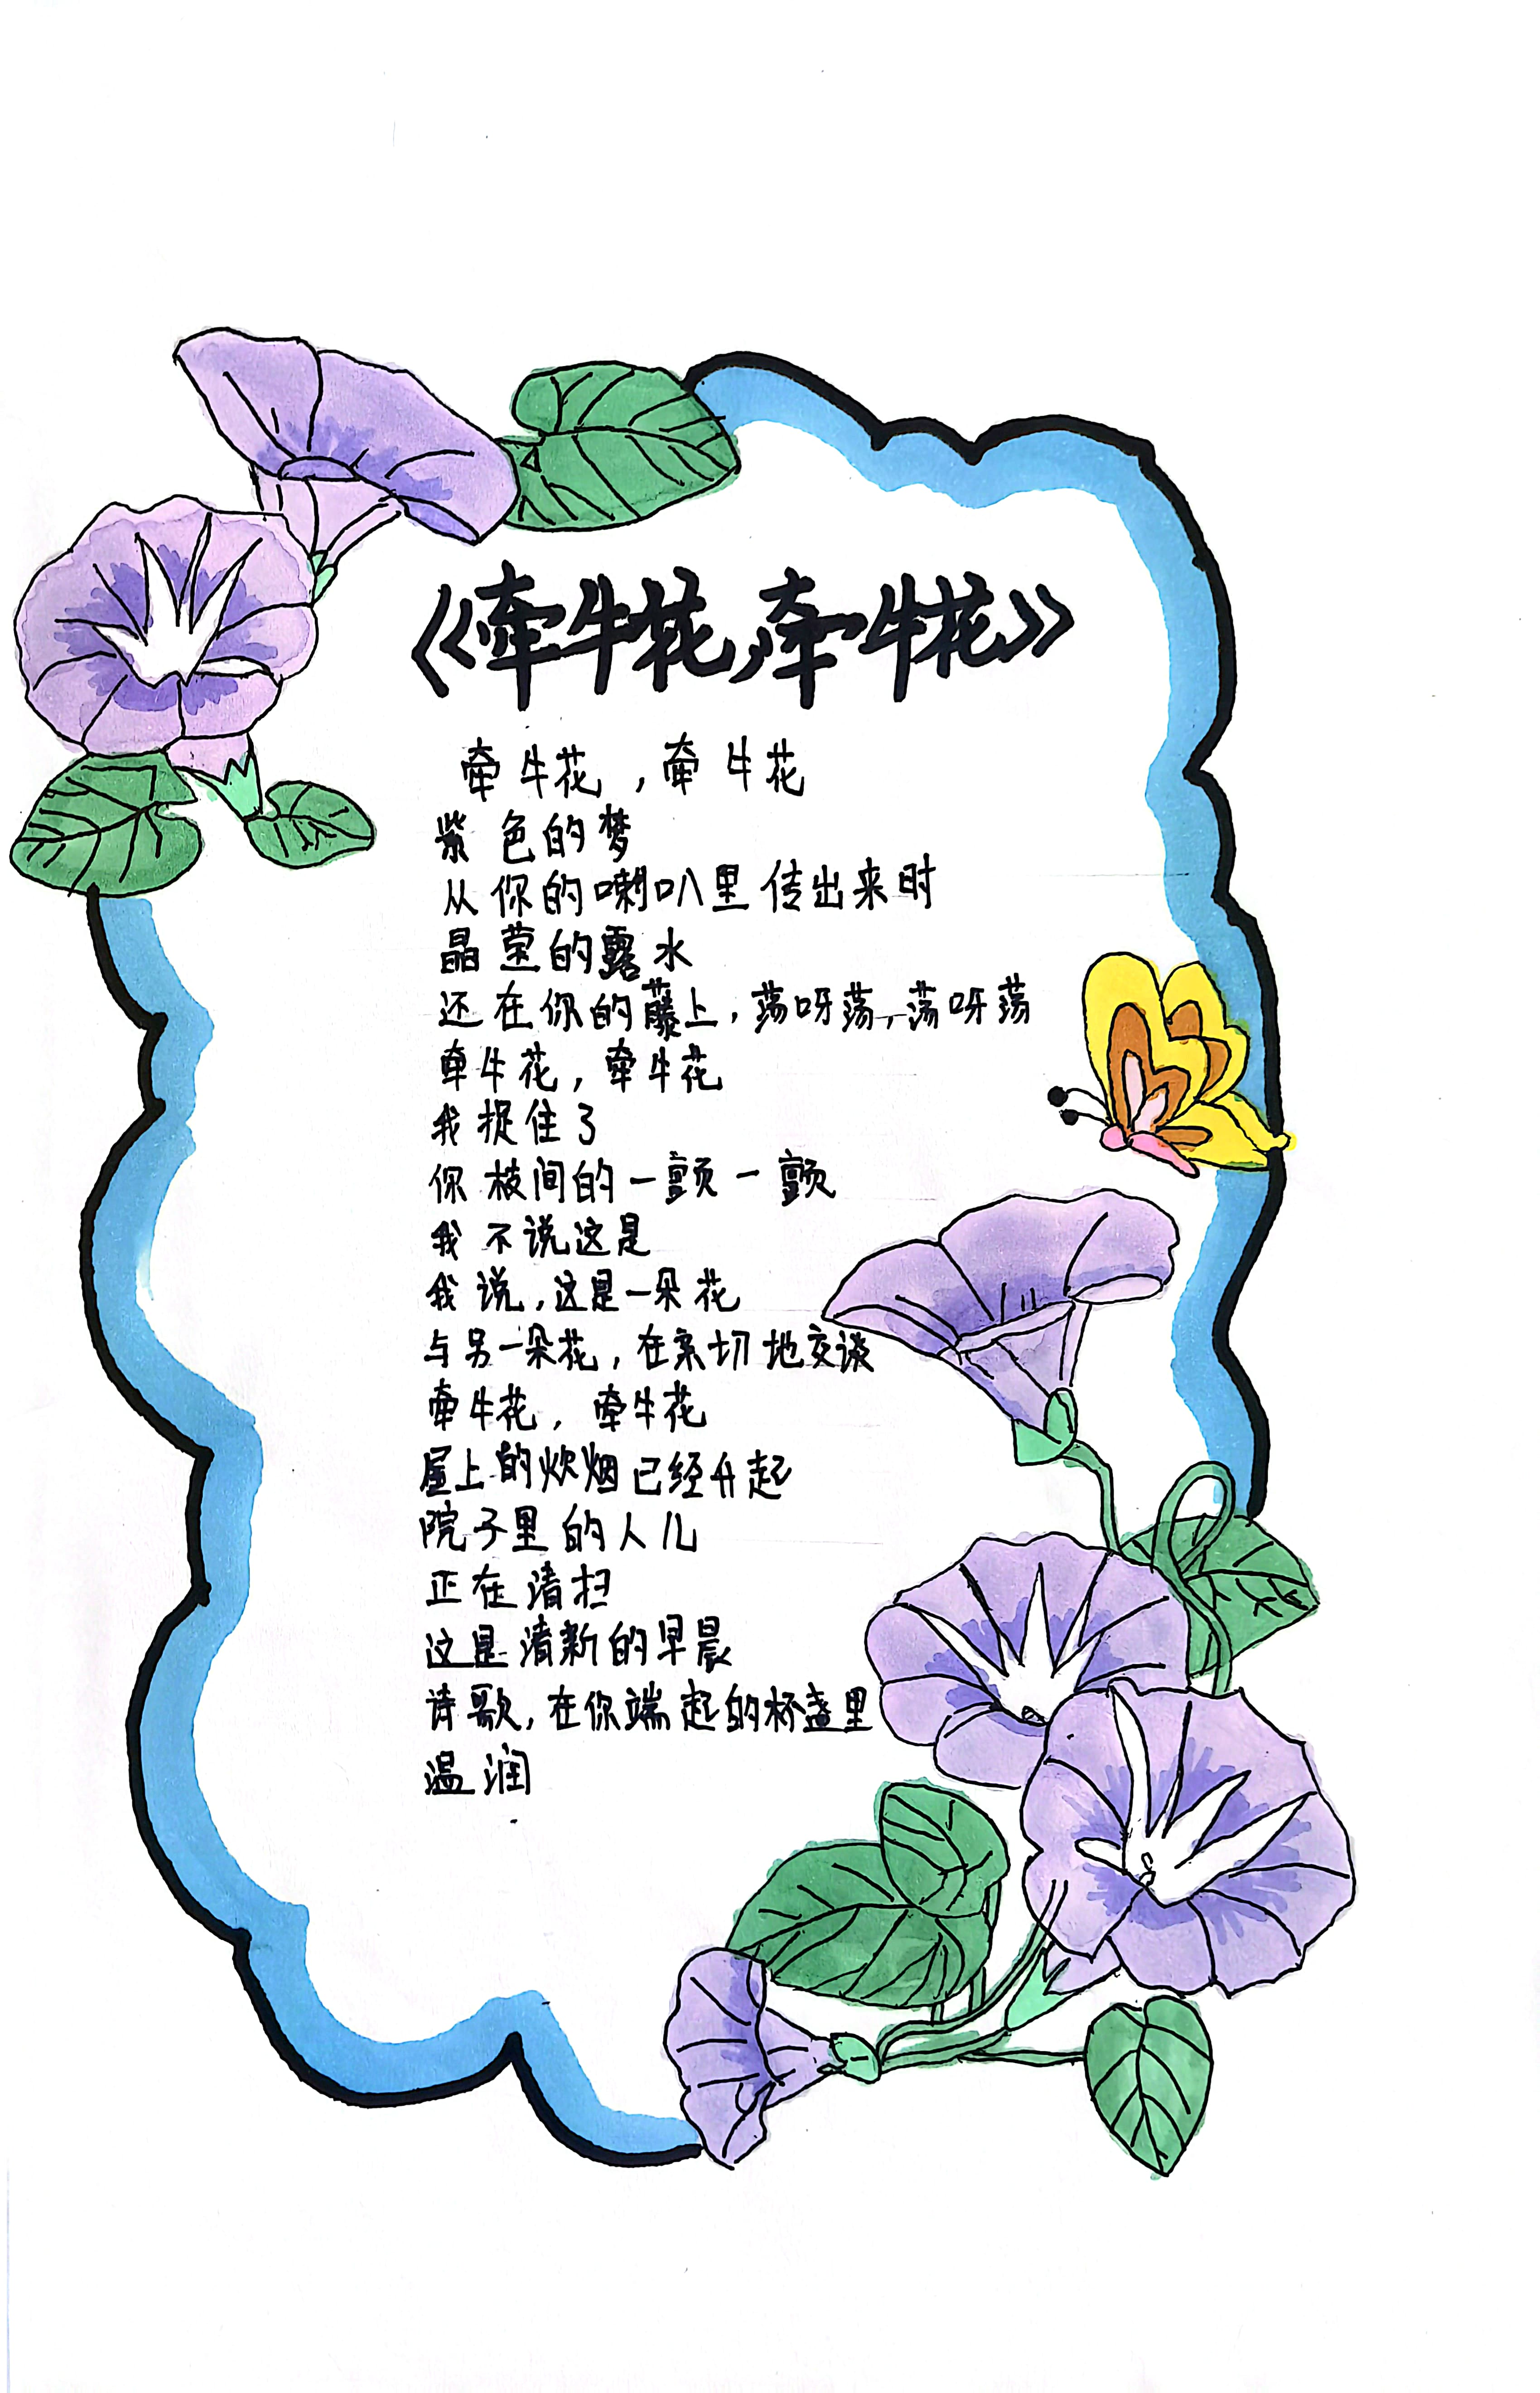 《牵牛花,牵牛花》
牵牛花,牵牛花
紫色的梦
从你的喇叭里传出来时
晶莹的露水
还在你的藤上,荡呀荡,荡呀荡
牵牛花,牵牛花
我捉住了
你枝间的一颤一颤
我不说这是
我说,这是一朵花
与另一朵花,在亲切地交谈
牵牛花,牵牛花
屋上的炊烟已经升起
院子里的人儿
正在清扫
这是清新的早晨
诗歌,在你端起的杯盏里
温润